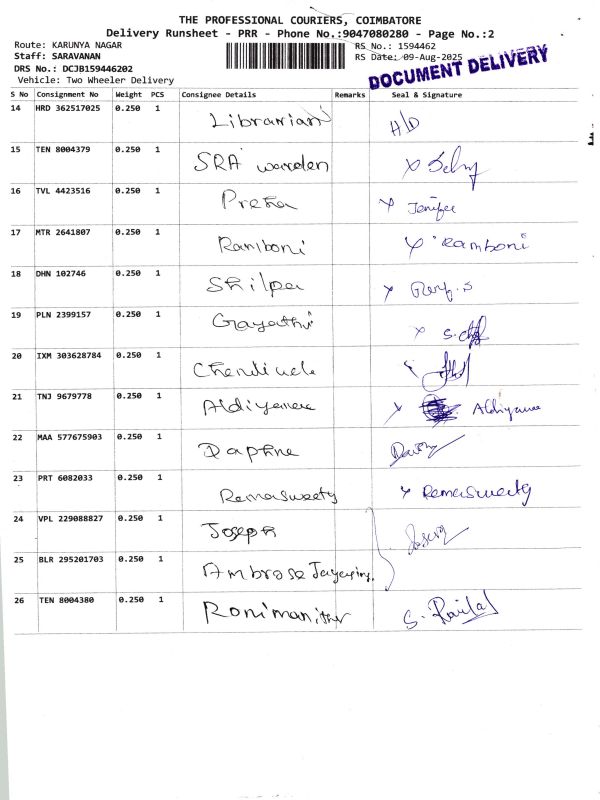 THE PROFESSIONAL COURIERS, COIMBATORE
Delivery Runsheet - PRR - Phone No.:9047080280 - Page No.:2
Route: KARUNYA NAGAR
Staff: SARAVANAN
DRS No.: DCJB159446202
Vehicle: Two Wheeler Delivery
RS No.: 1594462
RS Date: 09-Aug-2025
DOCUMENT DELIVERY
S No Consignment No Weight PCS Consignee Details Remarks Seal & Signature
14 HRD 362517025 0.250 1 Librarian H/D
15 TEN 8004379 0.250 1 SRA warden
16 TVL 4423516 0.250 1 Jenifer
17 MTR 2641807 0.250 1 Ramboni Ramboni
18 DHN 102746 0.250 1 Shilpa
19 PLN 2399157 0.250 1 Gayathri
20 IXM 303628784 0.250 1
21 TNJ 9679778 0.250 1
22 MAA 577675903 0.250 1 Daphne
23 PRT 6082033 0.250 1 Remasweety Remasweety
24 VPL 229088827 0.250 1 Joseph
25 BLR 295201703 0.250 1 Ambrose
26 TEN 8004380 0.250 1